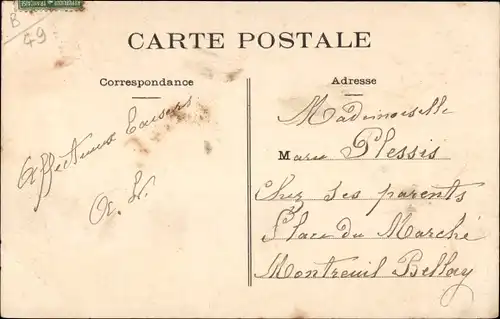 B
49
CARTE POSTALE
Correspondance
Affectueux baisers
Adresse
Mademoiselle
M Plessis
Chez ses parents
Place du Marché
Montreuil Bellay